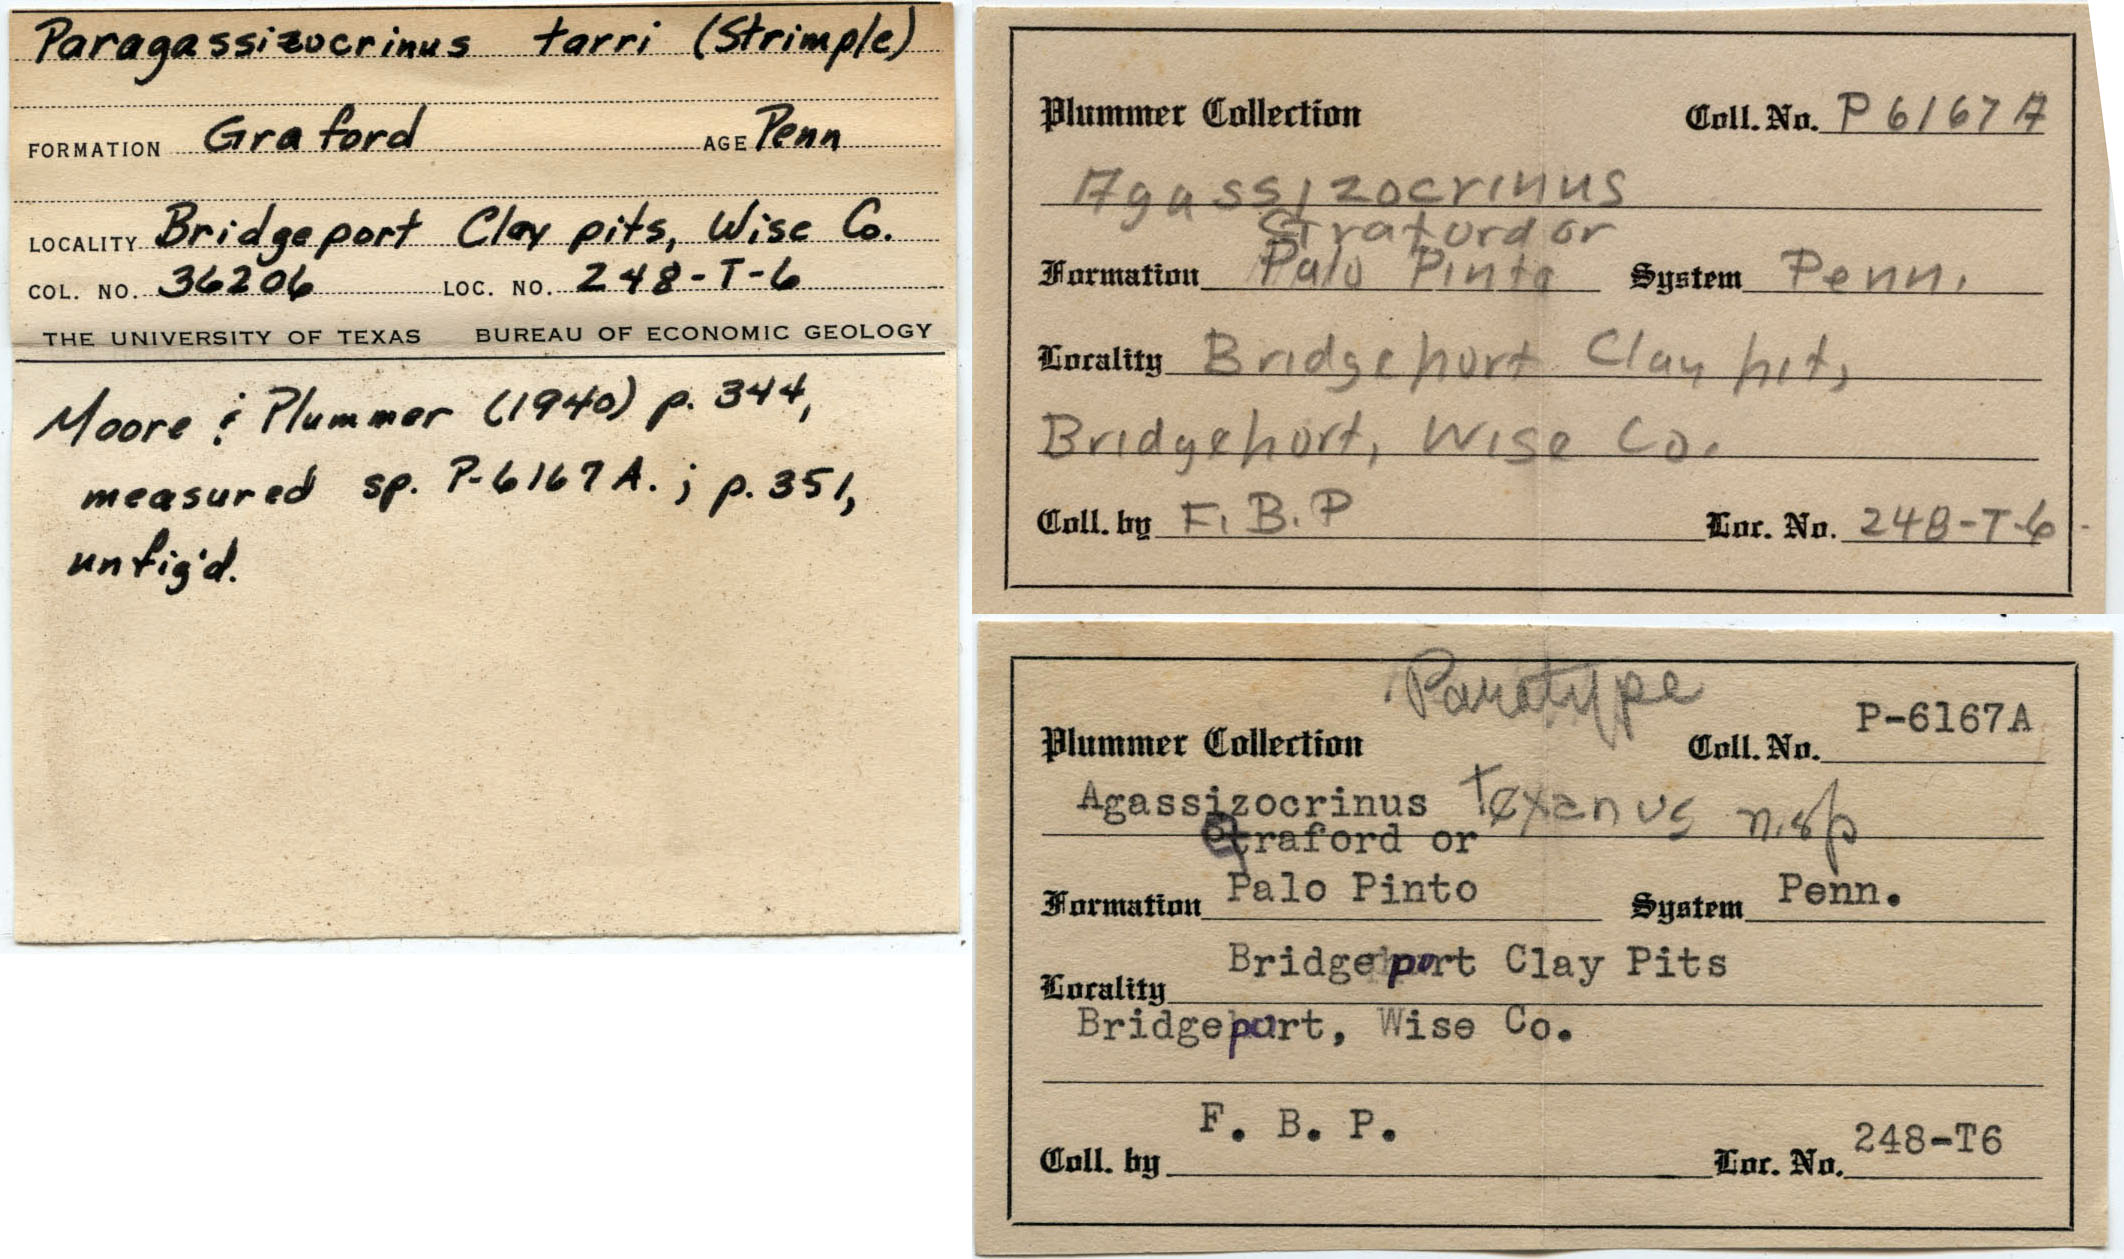 Paragassizocrinus tarri (Strimple)
FORMATION Graford AGE Penn
LOCALITY Bridgeport Clay pits, Wise Co.
COL. NO. 36206 LOC. NO. 248-T-6
THE UNIVERSITY OF TEXAS BUREAU OF ECONOMIC GEOLOGY
Moore & Plummer (1940) p. 344,
measured sp. P-6167A. ; p. 351,
unfig'd.
Plummer Collection Coll. No. P 6167 A
Agassizocrinus
Straford or
Formation Palo Pinto System Penn.
Locality Bridgeport Clay pit,
Bridgeport, Wise Co.
Coll. by F. B. P Loc. No. 248-T-6
Paratype
Plummer Collection Coll. No. P-6167A
Agassizocrinus texanus n. sp
Graford or
Formation Palo Pinto System Penn.
Locality Bridgeport Clay Pits
Bridgeport, Wise Co.
Coll. by F. B. P. Loc. No. 248-T6